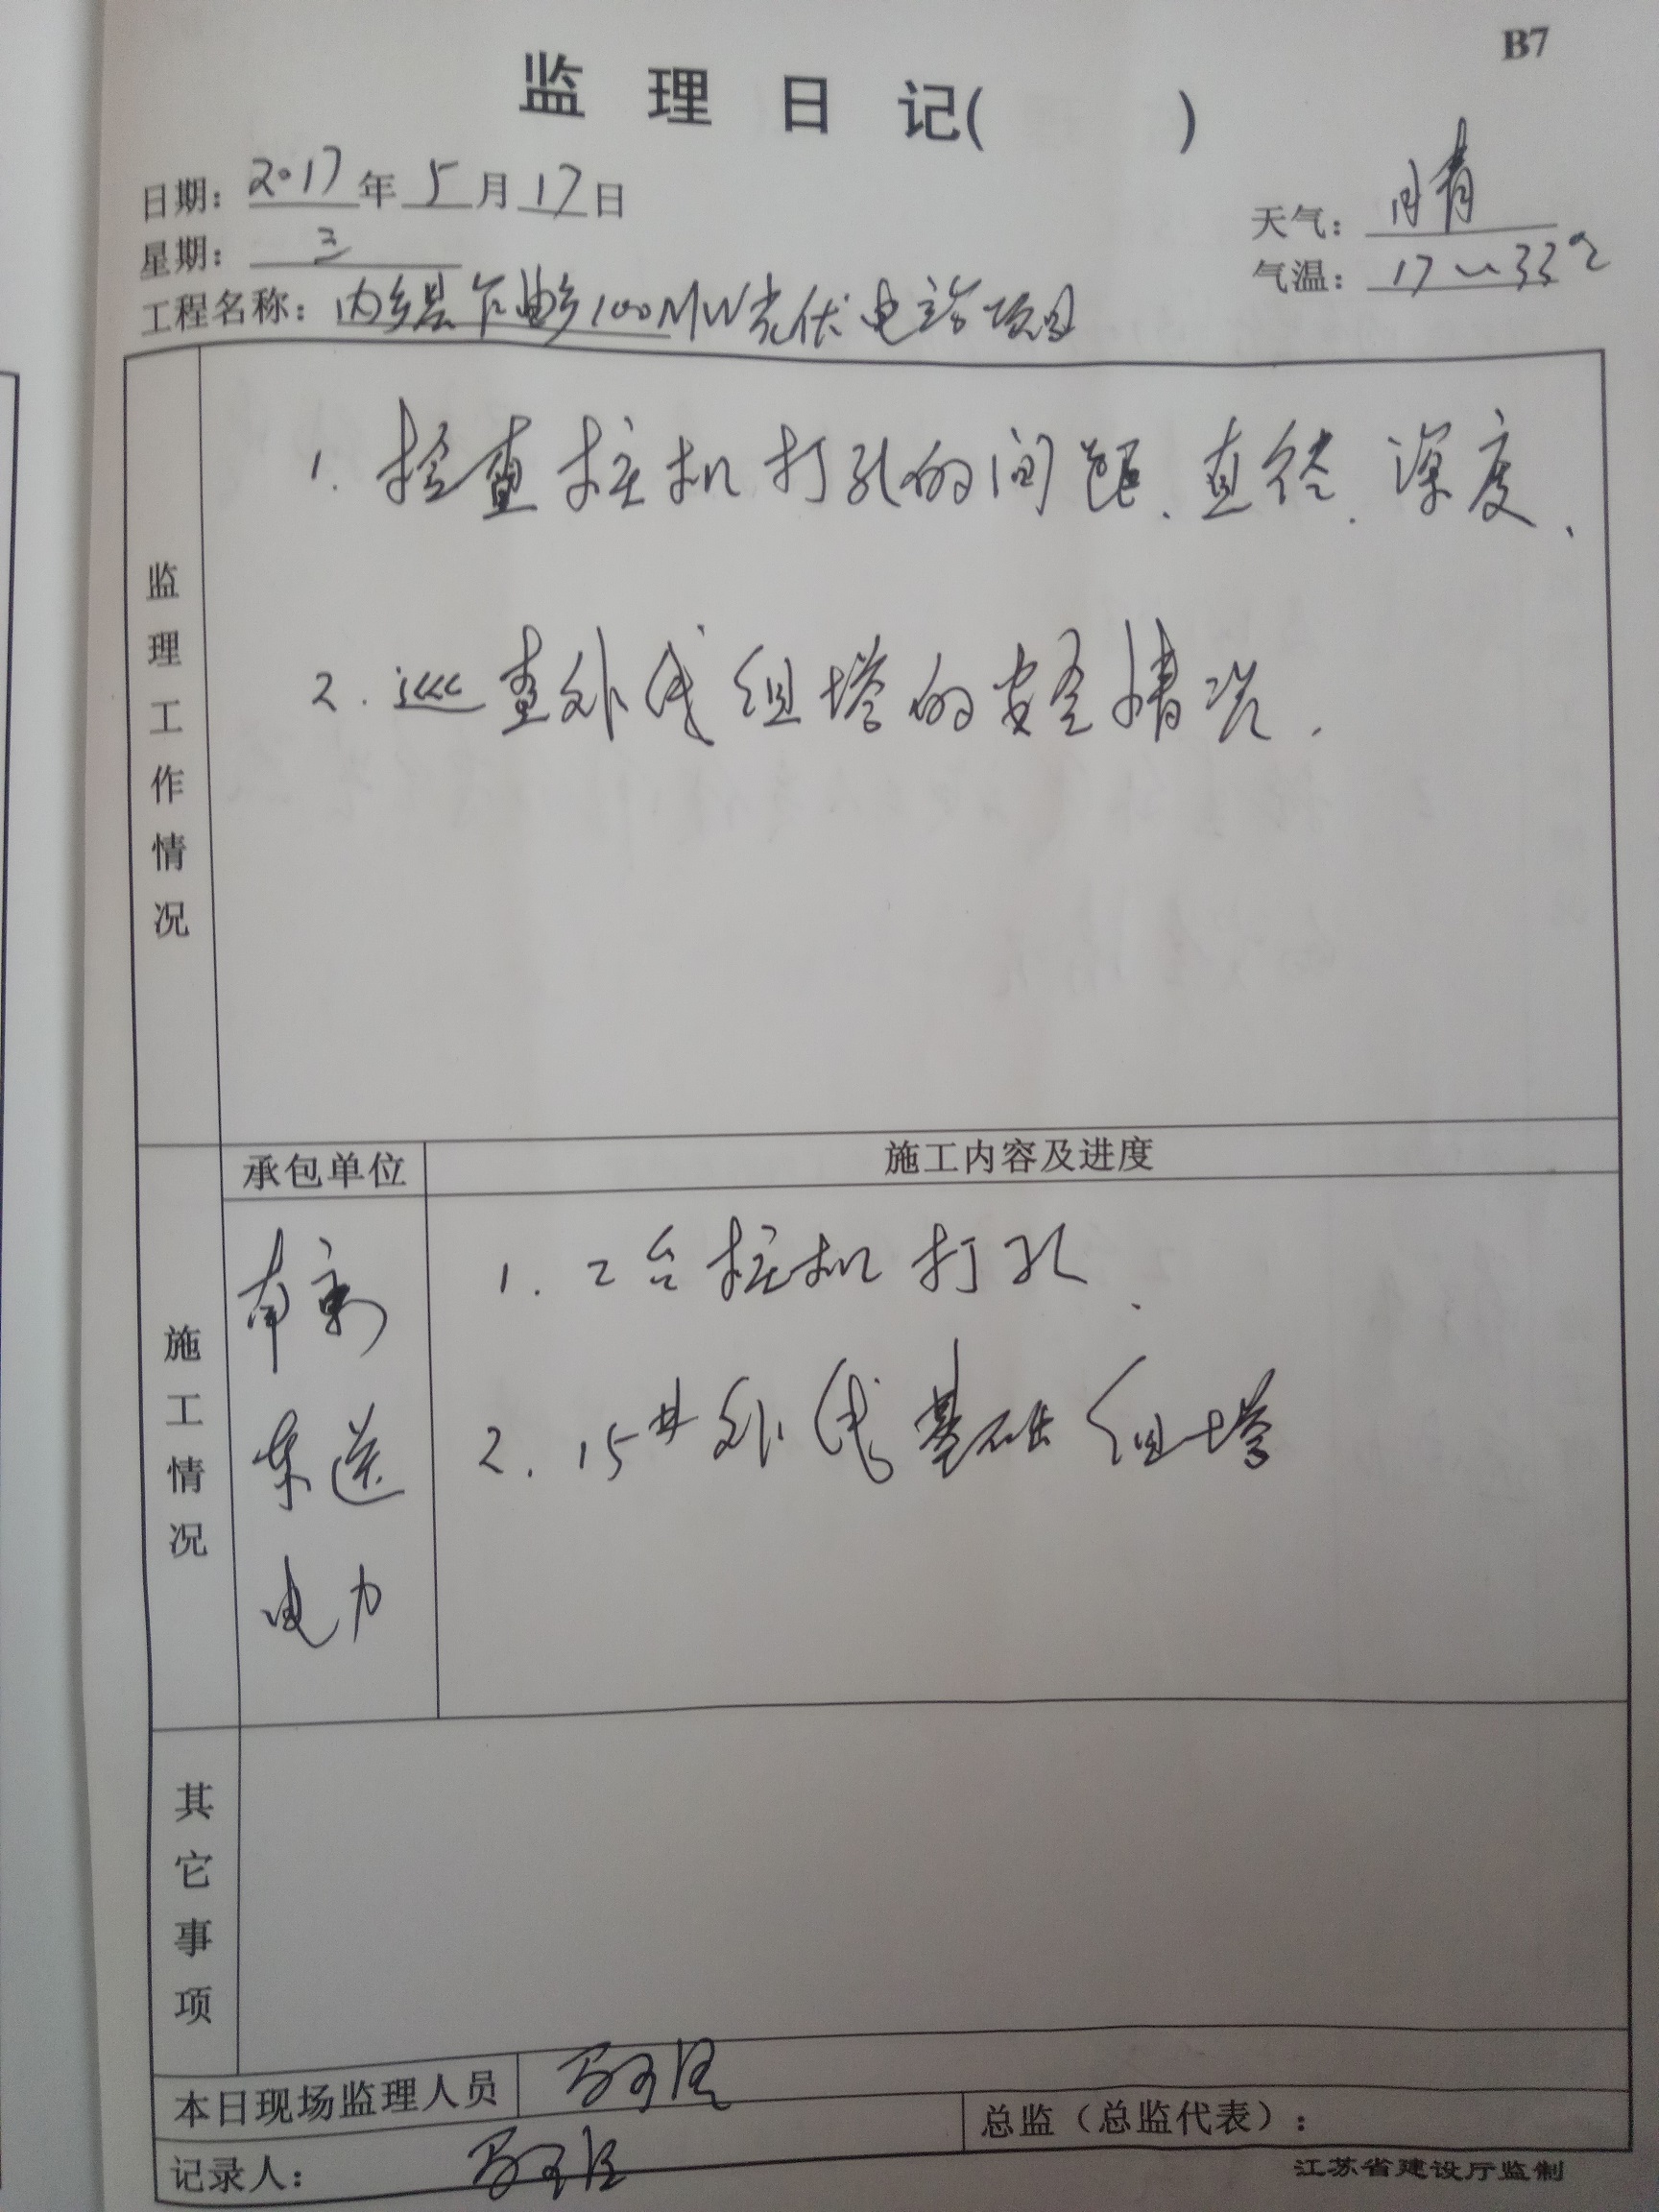 B7
监理日记( )
日期: 2017年5月17日
天气: 晴
星期: 三
气温: 17~33℃
工程名称: 内乡县乍曲乡100MW光伏电站项目
监理工作情况
1. 检查桩机打孔的间距、直径、深度、
2. 巡查外线组塔的安全情况.
施工情况
承包单位
施工内容及进度
南京
东送
电力
1. 2台桩机打孔.
2. 15#外线基础组塔
其它事项
本日现场监理人员
总监（总监代表）:
记录人:
江苏省建设厅监制